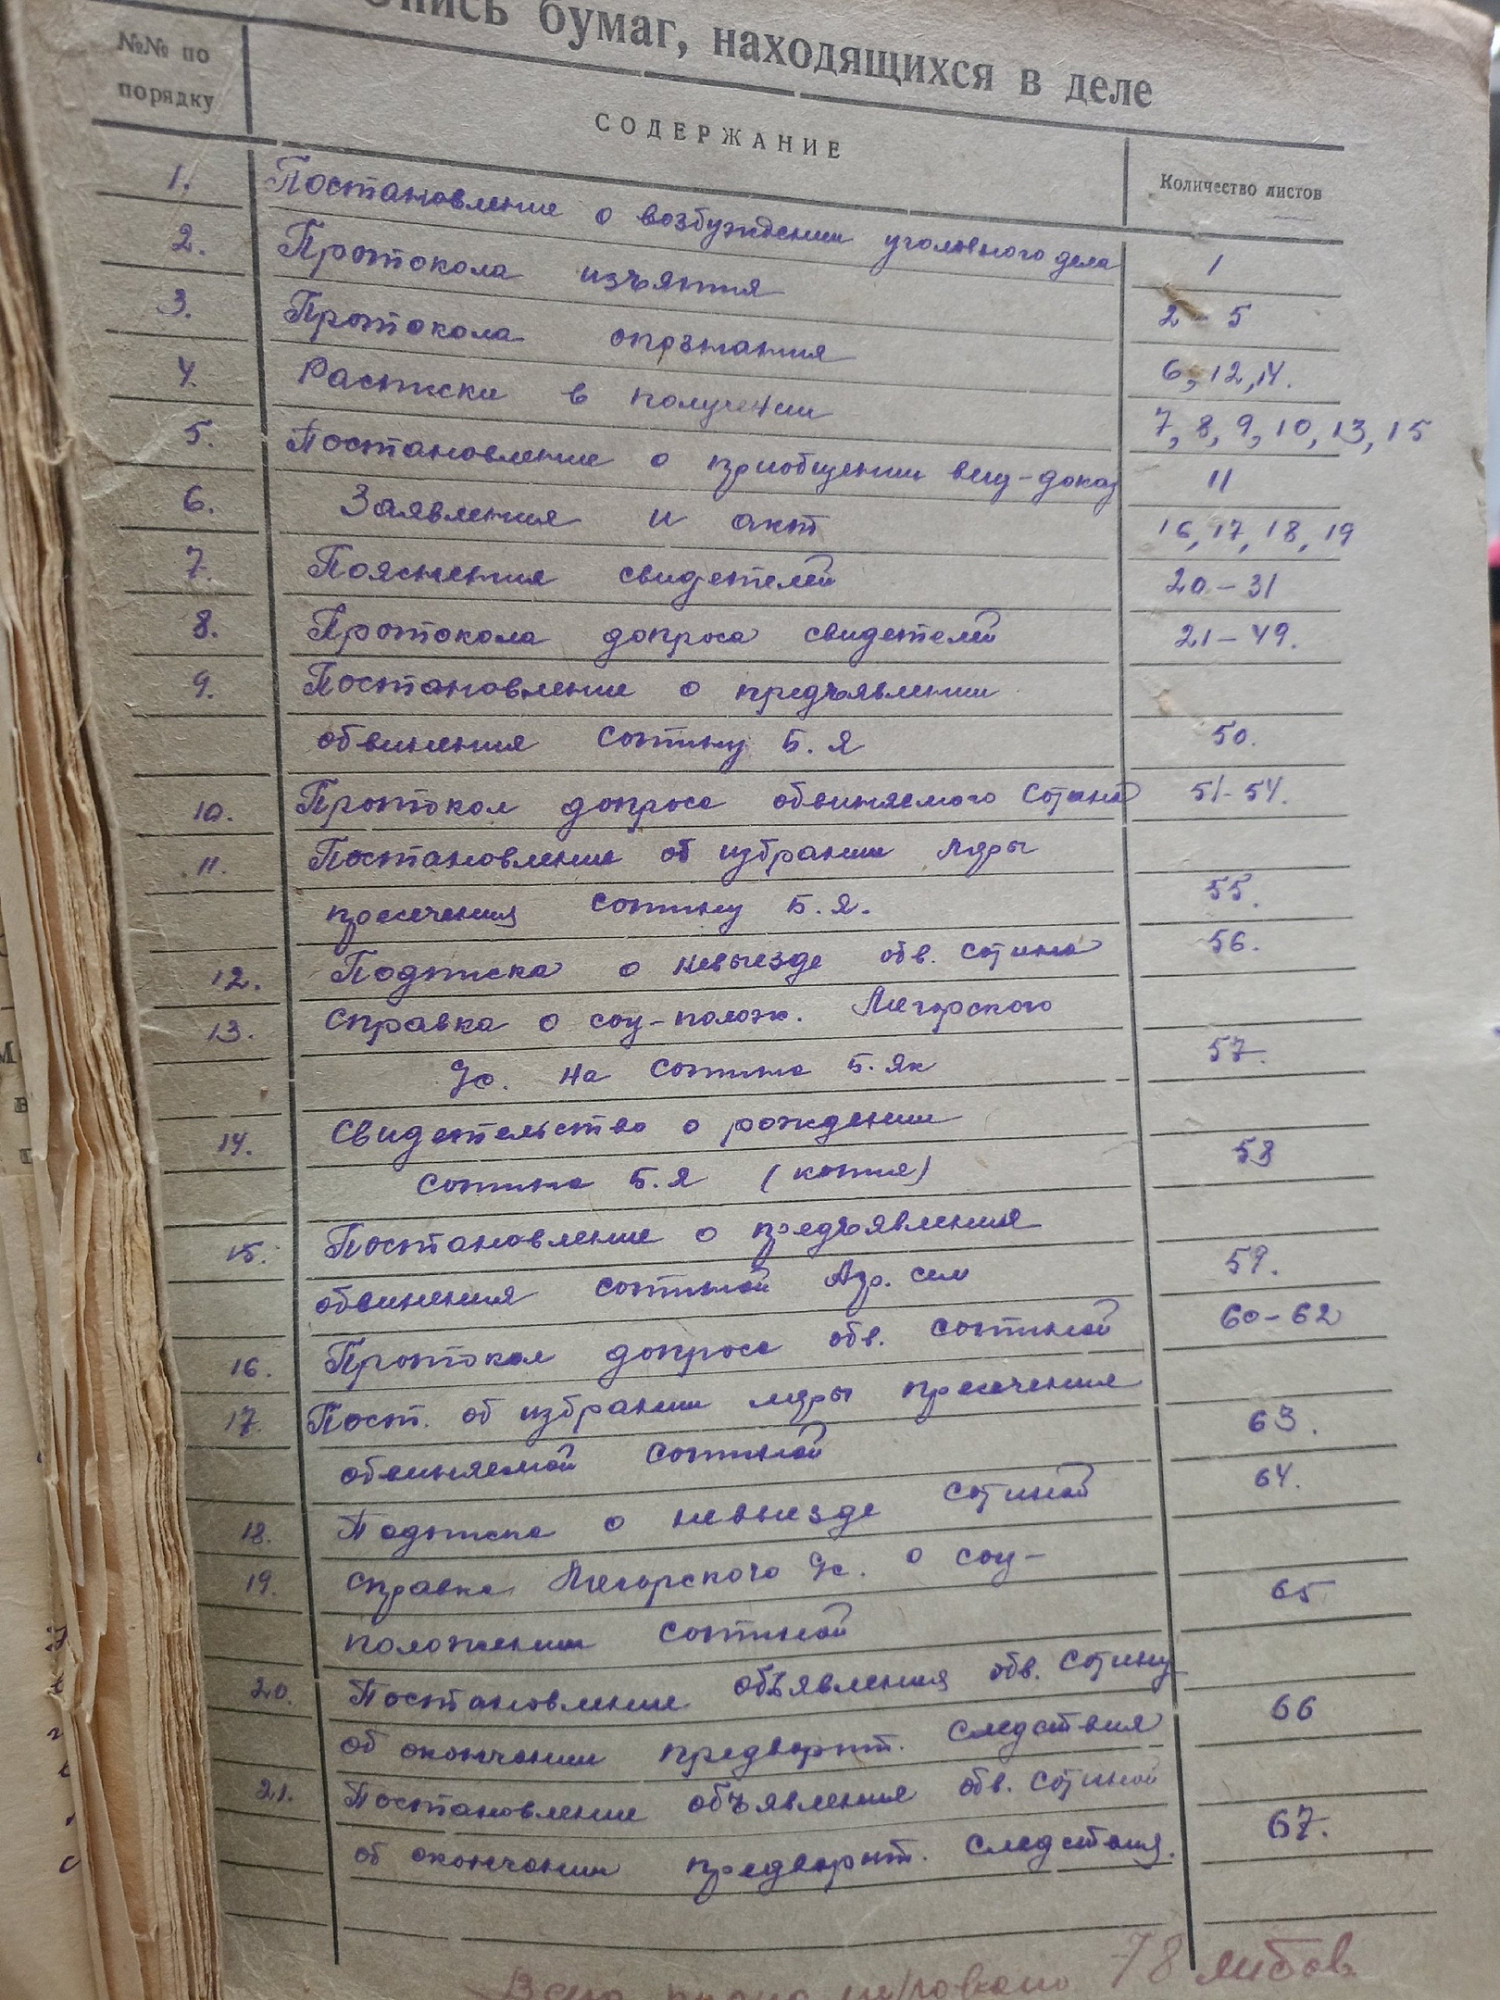 Опись бумаг, находящихся в деле
№№ по порядку
СОДЕРЖАНИЕ
Количество листов
1. Постановление о возбуждении уголовного дела 1
2. Протокола изъятия 2-5
3. Протокола опознания 6, 12, 14.
4. Расписки в получении 7, 8, 9, 10, 13, 15
5. Постановление о приобщении вещ-доказ 11
6. Заявления и акт 16, 17, 18, 19
7. Пояснения свидетелей 20-31
8. Протокола допроса свидетелей 21-49.
9. Постановление о предъявлении
обвинения Сотину Б.Я 50.
10. Протокол допроса обвиняемого Сотина 51-54.
11. Постановление об избрании меры
пресечения Сотину Б.Я. 55.
12. Подписка о невыезде обв. Сотина 56.
13. Справка о соц-полож. Мегорского
Ус. на Сотина Б.Як 57.
14. Свидетельство о рождении
Сотина Б.Я (копия) 58
15. Постановление о предъявления
обвинения Сотиной Агр. Сем 59.
16. Протокол допроса обв. Сотиной 60-62
17. Пост. об избрании меры пресечения
обвиняемой Сотиной 63.
18. Подписка о невыезде Сотиной 64.
19. Справка Мегорского Ус. о соц-
положении Сотиной 65
20. Постановление объявления обв. Сотину
об окончании предварит. следствия 66
21. Постановление объявления обв. Сотиной
об окончании предварит. следствия. 67.
Всего пронумеровано 78 листов